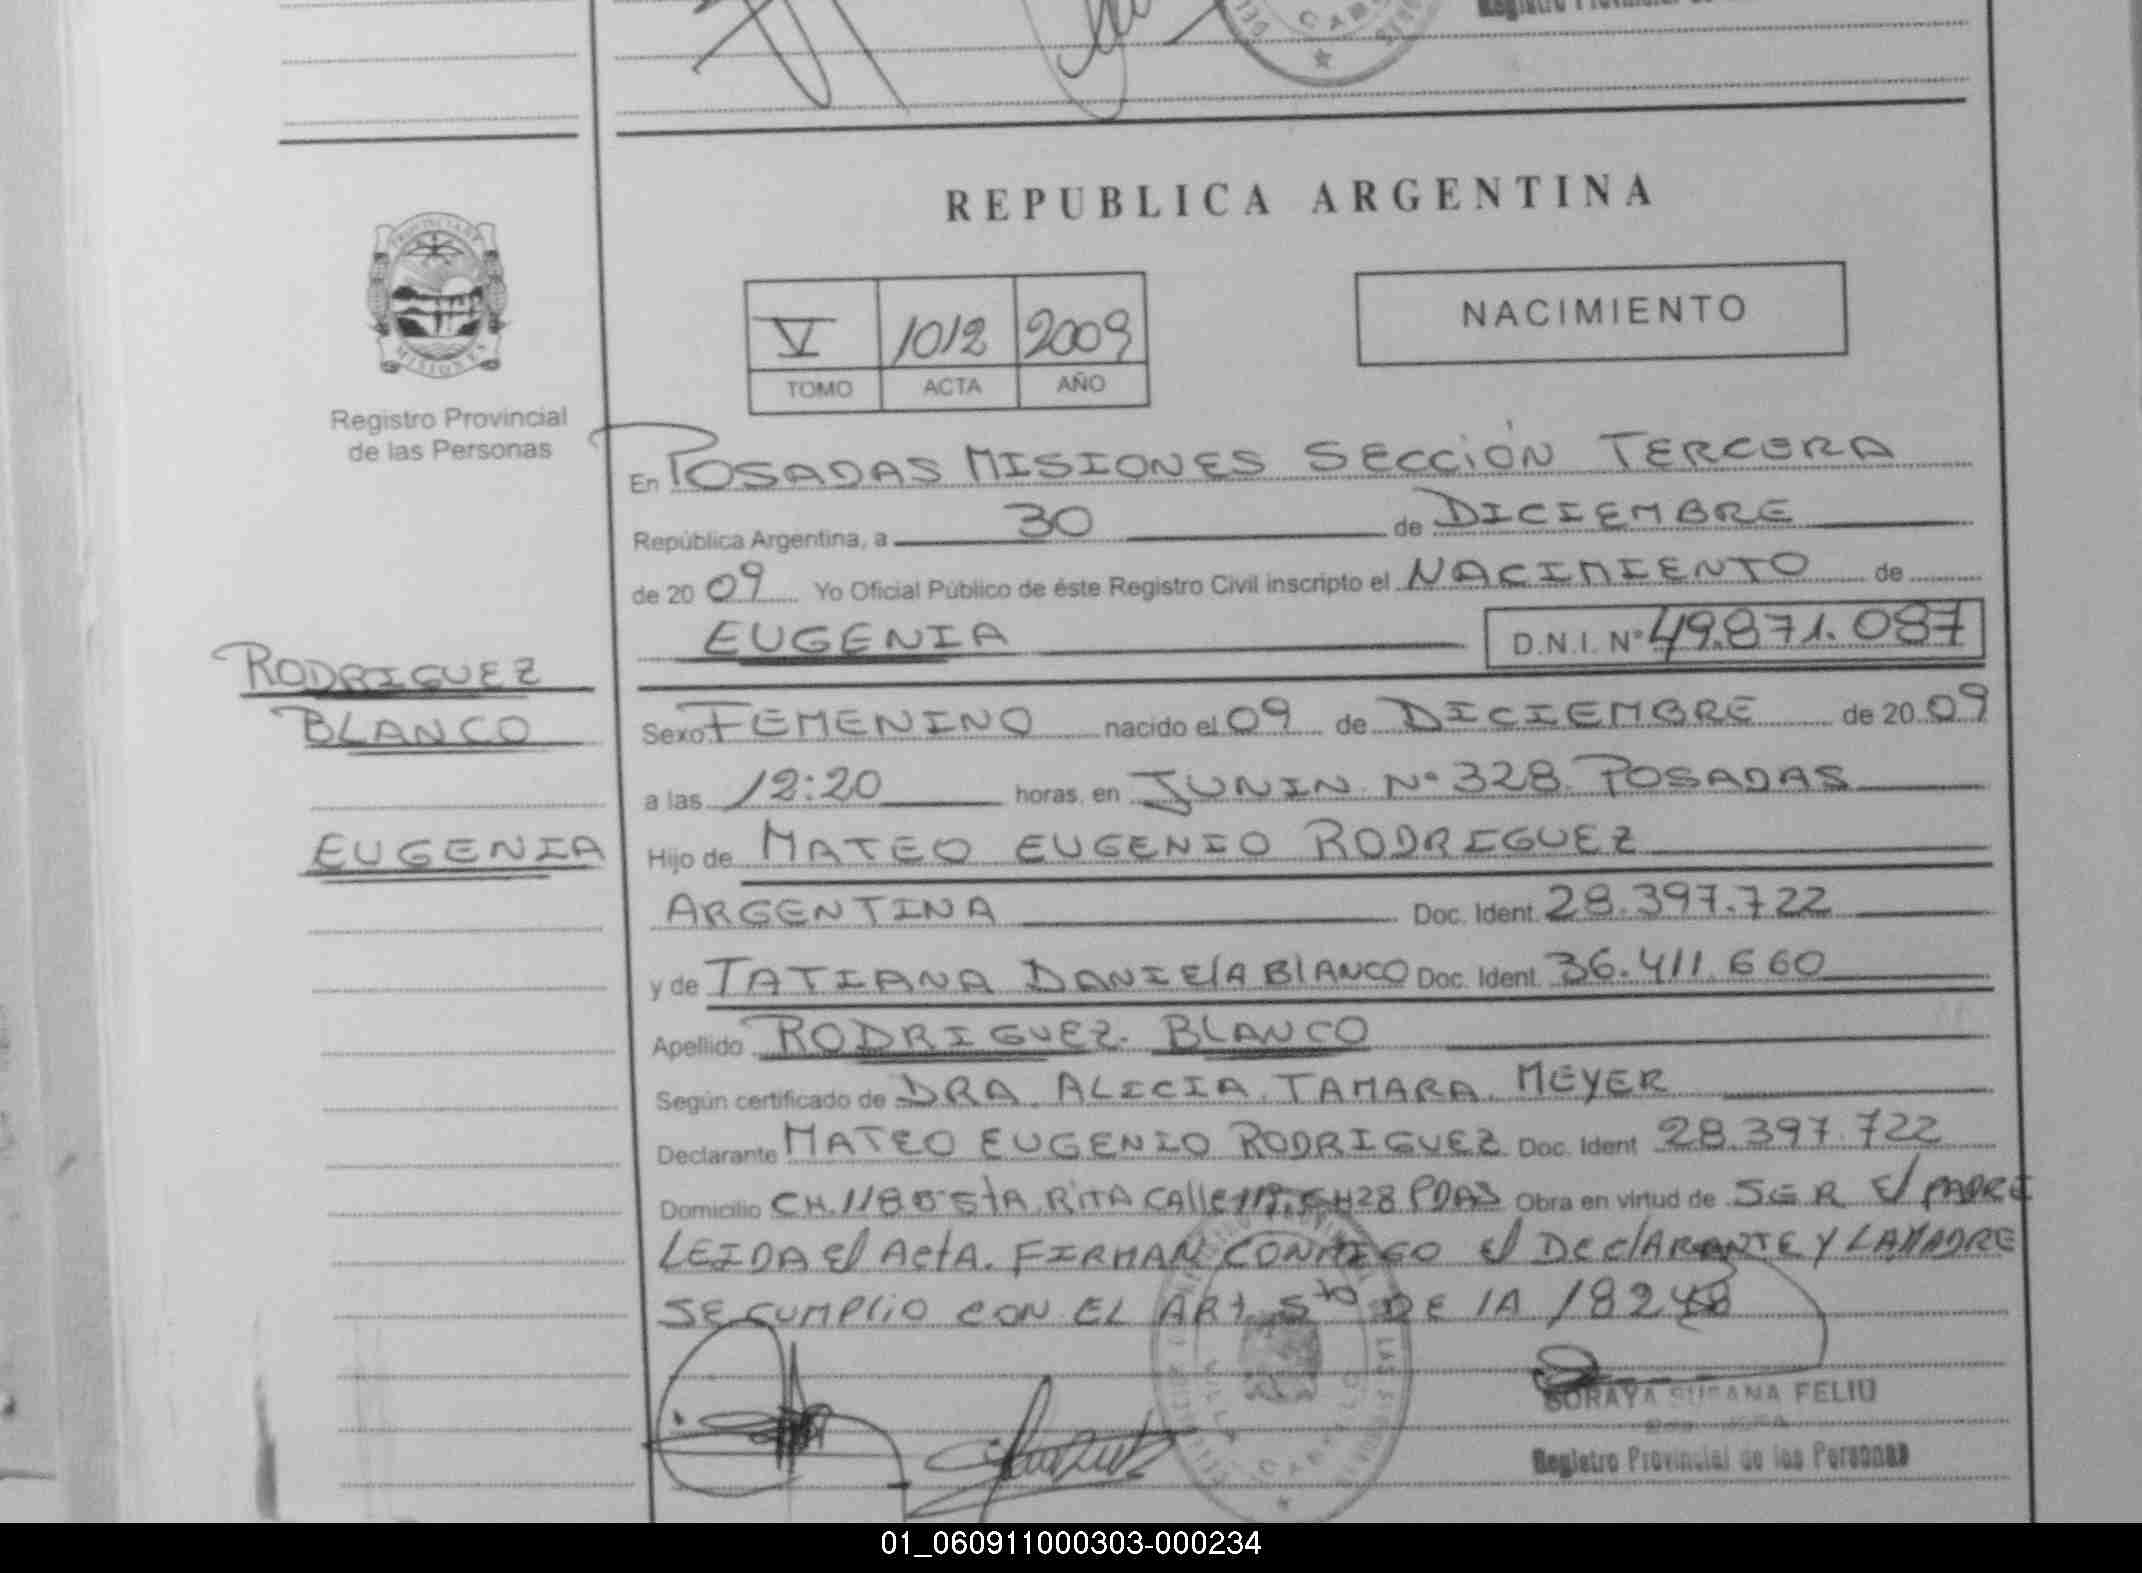 REPUBLICA ARGENTINA
PROVINCIA DE
MISIONES
Registro Provincial
de las Personas
V 1012 2009
TOMO ACTA AÑO
NACIMIENTO
En POSADAS MISIONES SECCIÓN TERCERA
República Argentina, a 30 de DICIEMBRE
de 20 09 Yo Oficial Público de éste Registro Civil inscripto el NACIMIENTO de
EUGENIA D.N.I. Nº 49.871.087
RODRIGUEZ
BLANCO
EUGENIA
Sexo FEMENINO nacido el 09 de DICIEMBRE de 20 09
a las 12:20 horas, en JUNIN Nº 328. POSADAS
Hijo de MATEO EUGENIO RODRIGUEZ
ARGENTINA Doc. Ident. 28.397.722
y de TATIANA DANIELA BLANCO Doc. Ident. 36.411.660
Apellido RODRIGUEZ BLANCO
Según certificado de DRA. ALICIA. TAMARA. MEYER
Declarante MATEO EUGENIO RODRIGUEZ Doc. Ident 28.397.722
Domicilio CH. 118 StA. RITA CAlle PDAS Obra en virtud de SER El PADRE
LEIDA El ActA. FIRMAN CONMIGO El DEClARANTE Y LA MADRE
SE CUMPLIO CON EL ARt. 5to DE lA 18248
SORAYA SUSANA FELIU
Registro Provincial de las Personas
01_060911000303-000234